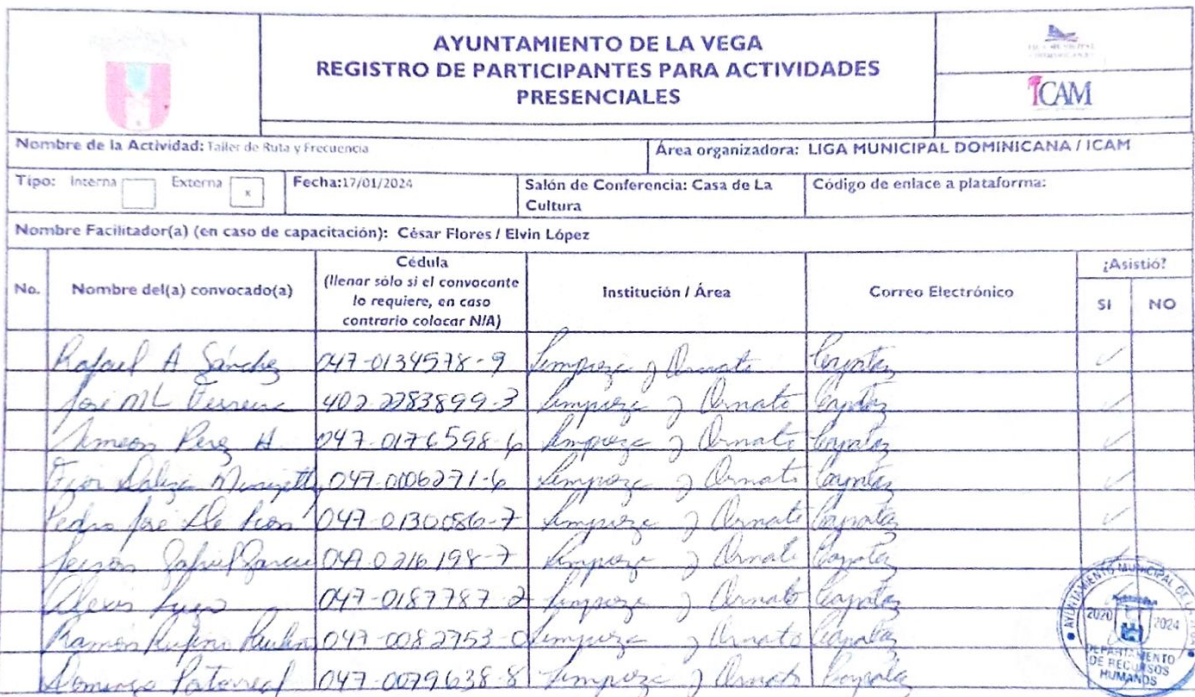 AYUNTAMIENTO DE LA VEGA
REGISTRO DE PARTICIPANTES PARA ACTIVIDADES
PRESENCIALES
ICAM
Nombre de la Actividad: Taller de Ruta y Frecuencia
Área organizadora: LIGA MUNICIPAL DOMINICANA / ICAM
Tipo: Interna Externa x
Fecha:17/01/2024
Salón de Conferencia: Casa de La
Cultura
Código de enlace a plataforma:
Nombre Facilitador(a) (en caso de capacitación): César Flores / Elvin López
No.
Nombre del(a) convocado(a)
Cédula
(llenar sólo si el convocante
lo requiere, en caso
contrario colocar N/A)
Institución / Área
Correo Electrónico
¿Asistió?
SI NO
Rafael A Sánchez 047-0134578-9 Limpieza y Ornato ✓
José ML 402-2283899-3 Limpieza y Ornato ✓
Simeon Perez H. 047-0176598-6 Limpieza y Ornato ✓
047-0006271-6 Limpieza y Ornato ✓
Pedro José De Leon 047-0130086-7 Limpieza y Ornato ✓
Garcia 047-0216198-7 Limpieza y Ornato
Alexis Lugo 047-0187787-2 Limpieza y Ornato
Ramón Rufino 047-0082753-0 Limpieza y Ornato
Domingo 047-0079638-8 Limpieza y Ornato
AYUNTAMIENTO MUNICIPAL DE LA
2020 2024
DEPARTAMENTO
DE RECURSOS
HUMANOS